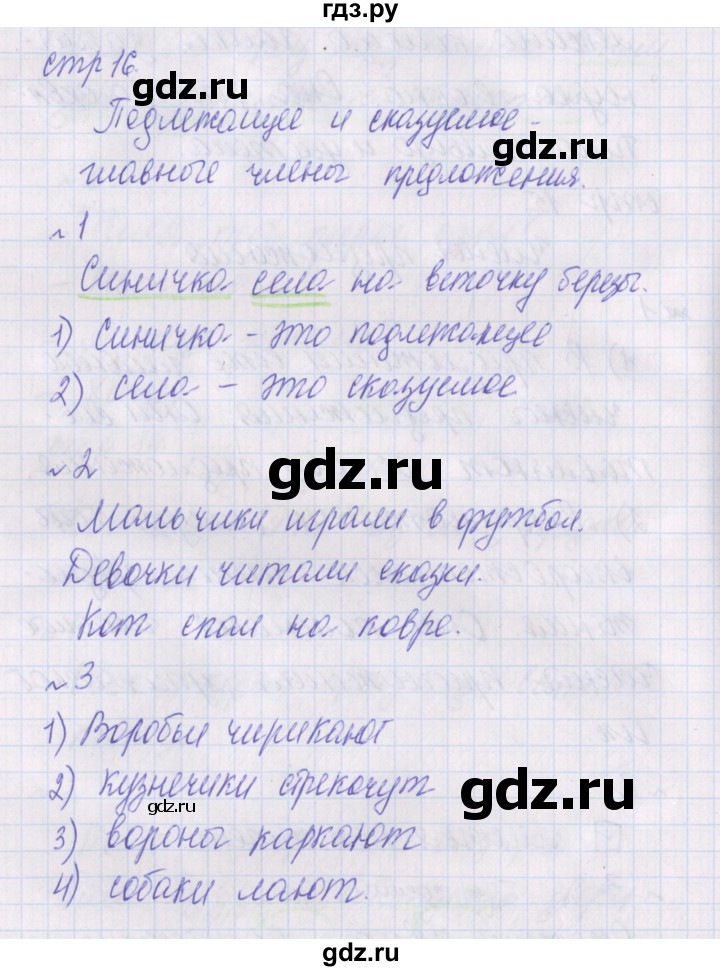 гдз.ру
стр 16.
Подлежащее и сказуемое -
главные члены предложения.
~ 1
Синичка села на веточку березы.
1) Синичка - это подлежащее
2) села - это сказуемое
gdz.ru
~ 2
Мальчики играли в футбол.
Девочки читали сказки.
Кот спал на ковре.
~ 3
1) Воробьи чирикают
2) кузнечики стрекочут
gdz.ru
gdz.ru
3) вороны каркают
4) собаки лают.
gdz.ru